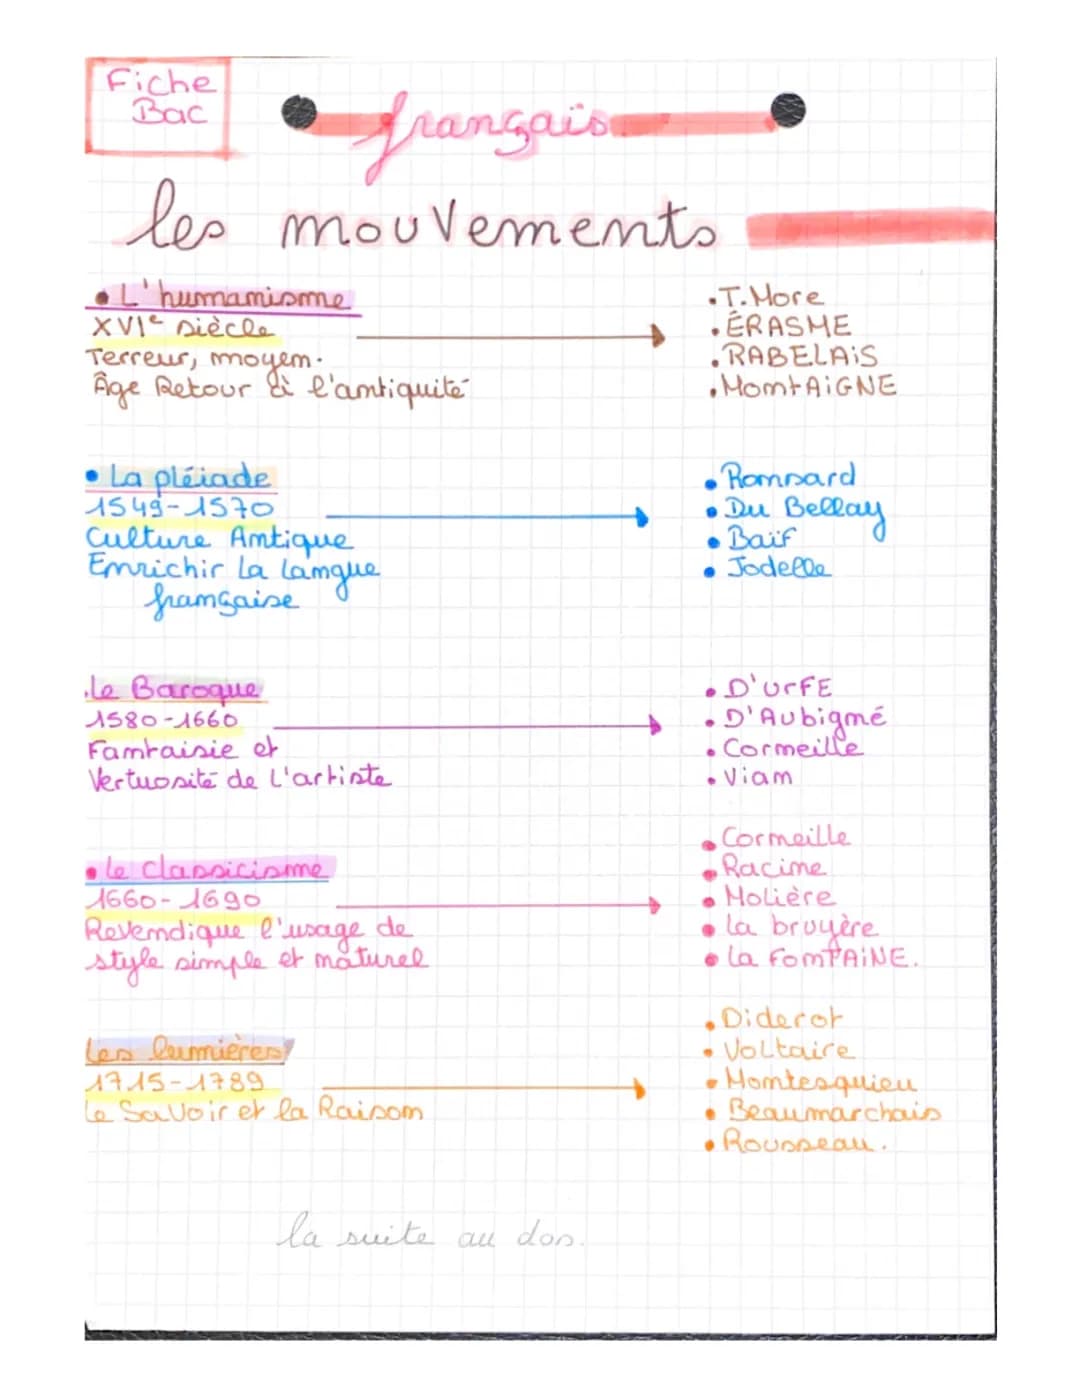 Fiche
Bac
français
les mouvements
• L'humanisme
XVIe siècle
Terreur, moyen.
Âge Retour à l'antiquité
• T. More
• ÉRASME
• RABELAiS
• MontAiGNE
• La pléiade
1549-1570
Culture Antique
Enrichir la langue
française
• Ronsard
• Du Bellay
• Baïf
• Jodelle
• le Baroque
1580-1660
Fantaisie et
Vertuosité de l'artiste
• D'UrFE
• D'Aubigné
• Corneille
• Viam
• le classicisme
1660-1690
Revendique l'usage de
style simple et naturel
• Corneille
• Racine
• Molière
• la bruyère
• la FonTAiNE.
les lumières
1715-1789
le Savoir et la Raison
• Diderot
• Voltaire
• Montesquieu
• Beaumarchais
• Rousseau.
la suite au dos.